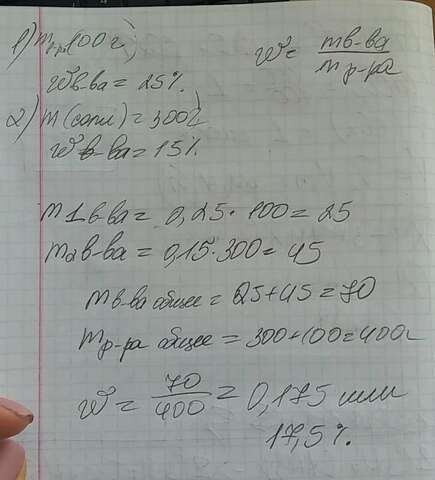 1) m р-р 100г,
w в-ва = 25%
w = m в-ва / m р-ра
2) m (соли) = 300г
w в-ва = 15%
m1 в-ва = 0,25 · 100 = 25
m2 в-ва = 0,15 · 300 = 45
m в-ва общее = 25 + 45 = 70
m р-ра общее = 300 + 100 = 400г
w = 70 / 400 = 0,175 или
17,5%.